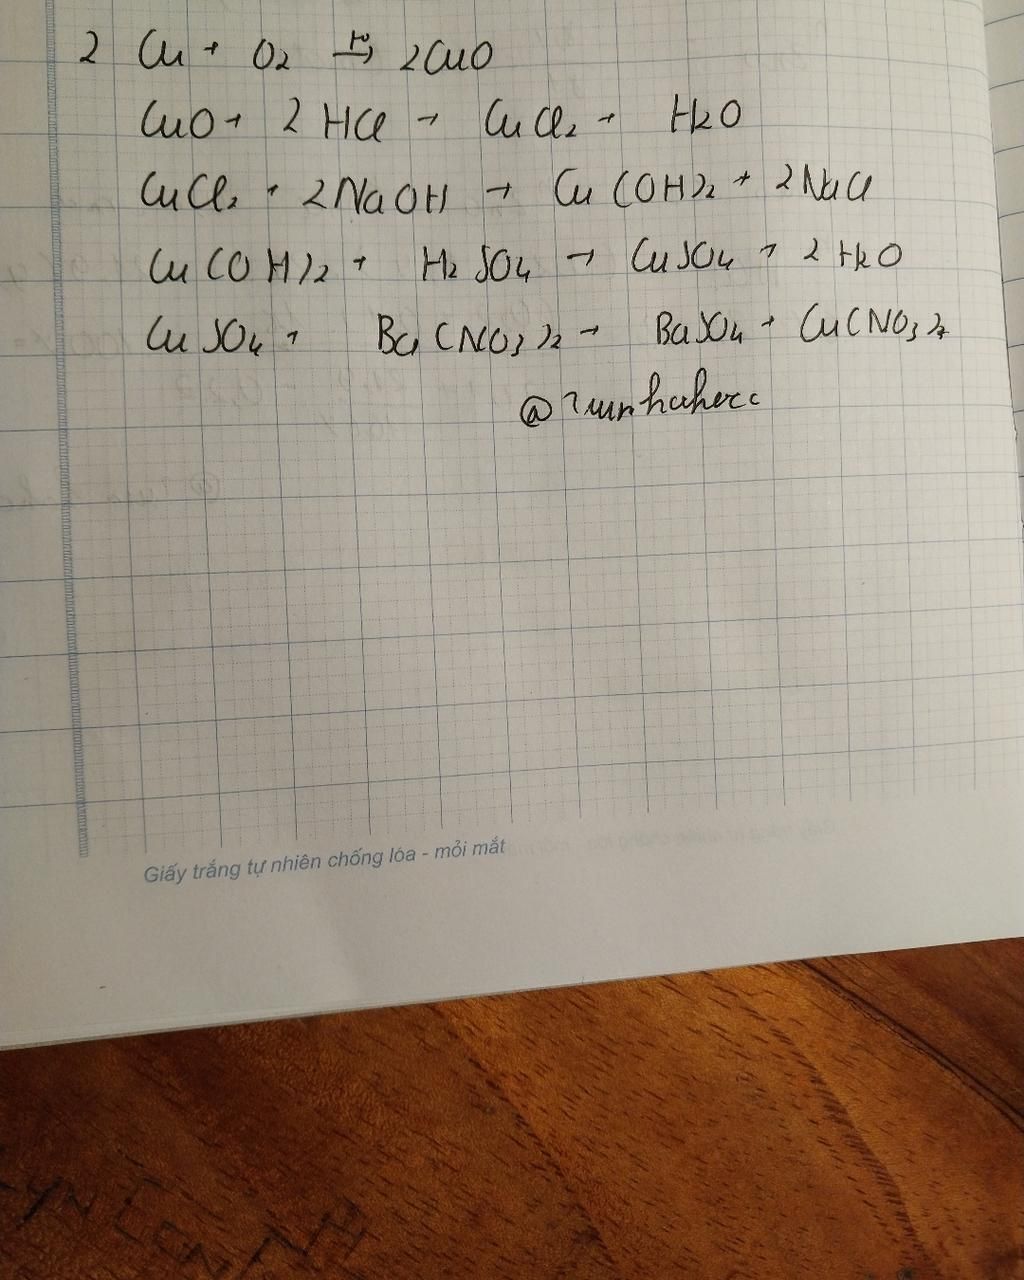 2 Cu + O₂ t°→ 2CuO
CuO + 2 HCl → CuCl₂ + H₂O
CuCl₂ + 2NaOH → Cu(OH)₂ + 2NaCl
Cu(OH)₂ + H₂SO₄ → CuSO₄ + 2 H₂O
CuSO₄ + Ba(NO₃)₂ → BaSO₄ + Cu(NO₃)₂
Giấy trắng tự nhiên chống lóa - mỏi mắt